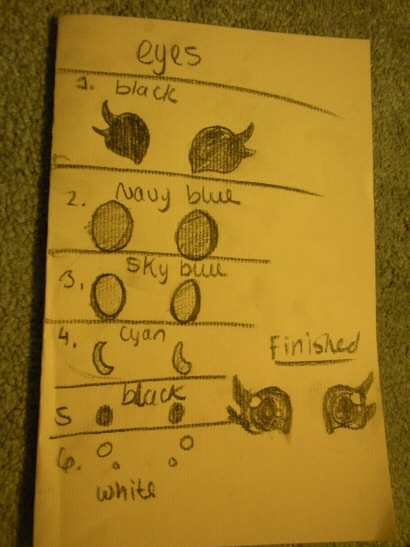 eyes
1. black
2. Navy blue
3. Sky blue
4. cyan
Finished
5 black
6.
white